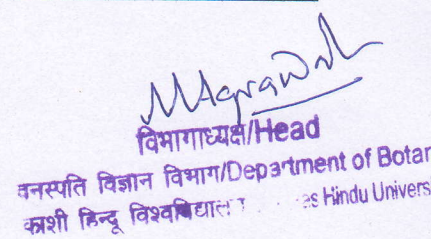 MAgrawal
विभागाध्यक्ष/Head
वनस्पति विज्ञान विभाग/Department of Botan
काशी हिन्दू विश्वविद्यालय es Hindu Universi